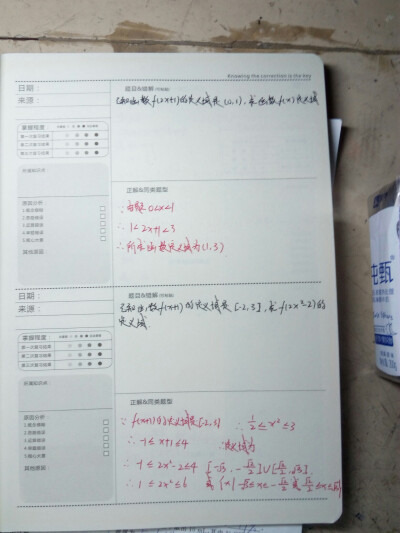 Knowing the correction is the key
日期：
来源：
题目&错解（可剪贴）
已知函数f(2x+1)的定义域是(0,1)，求函数f(x)定义域
掌握程度：
第一次复习结果
第二次复习结果
第三次复习结果
所属知识点：
正解&同类题型
∵ 0<x<1
∴ 1<2x+1<3
∴ 所求函数定义域为(1,3)
原因分析：
1.概念模糊
2.思路错误
3.运算错误
4.审题错误
5.粗心大意
其他原因：
日期：
来源：
题目&错解（可剪贴）
已知函数f(x+1)的定义域是[-2,3]，求f(2x²-2)的
定义域
掌握程度：
第一次复习结果
第二次复习结果
第三次复习结果
所属知识点：
正解&同类题型
∵ f(x+1)的定义域是[-2,3]
∴ -1≤x+1≤4
∴ -1≤2x²-2≤4
∴ 1≤2x²≤6
∴ 1/2≤x²≤3
定义域为
[-√3,-√2/2]∪[√2/2,√3]
或{x|-√3≤x≤-√2/2或√2/2≤x≤√3}
原因分析：
1.概念模糊
2.思路错误
3.运算错误
4.审题错误
5.粗心大意
其他原因：
甄